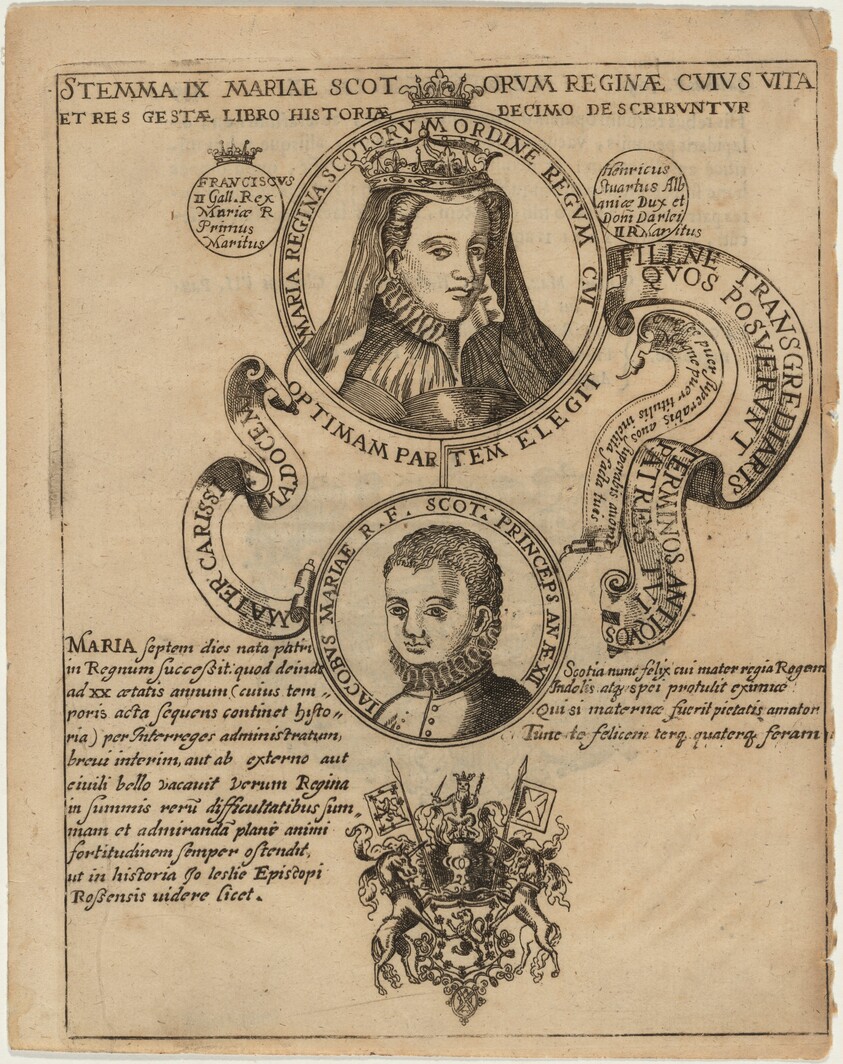 STEMMA IX MARIAE SCOTORVM REGINÆ CVIVS VITA
ET RES GESTÆ LIBRO HISTORIÆ DECIMO DESCRIBVNTVR
FRANCISCVS
II Gall. Rex
Mariæ R
Primus
Maritus
MARIA REGINA SCOTORVM ORDINE REGVM CVI
OPTIMAM PARTEM ELEGIT
Henricus
Stuartus Alb
aniæ Dux et
Dom̄ Darlei
II R Maritus
FILI NE TRANSGREDIARIS
TERMINOS ANTIQVOS
QVOS POSVERVNT
PATRES TVI
puer superabis auos superabis
que puer titulis inclita facta tues
MATER CARISSIMA DOCEM
IACOBVS MARIAE R. F. SCOT. PRINCEPS AN Æ XII
MARIA septem dies nata patri
in Regnum successit quod deinde
ad xx ætatis annum (cuius tem〃
poris acta sequens continet histo〃
ria) per Interreges administratum,
breui interim, aut ab externo aut
ciuili bello vacauit verum Regina
in summis rerū difficultatibus sum〃
mam et admirandā planè animi
fortitudinem semper ostendit,
ut in historia Jo leslie Episcopi
Rossensis uidere licet.
Scotia nunc felix cui mater regia Regem
Indolis atq, spei protulit eximiæ:
Qui si maternæ fuerit pietatis amator
Tunc te felicem terq, quaterq, feram